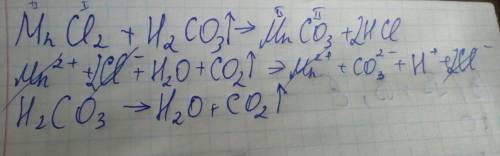 II I II
MnCl₂ + H₂CO₃↑ → MnCO₃ + 2HCl
Mn²⁺ + 2Cl⁻ + H₂O + CO₂↑ → Mn²⁺ + CO₃²⁻ + H⁺ + 2Cl⁻
H₂CO₃ → H₂O + CO₂↑